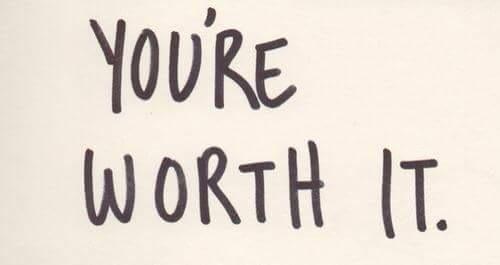 YOU'RE
WORTH IT.